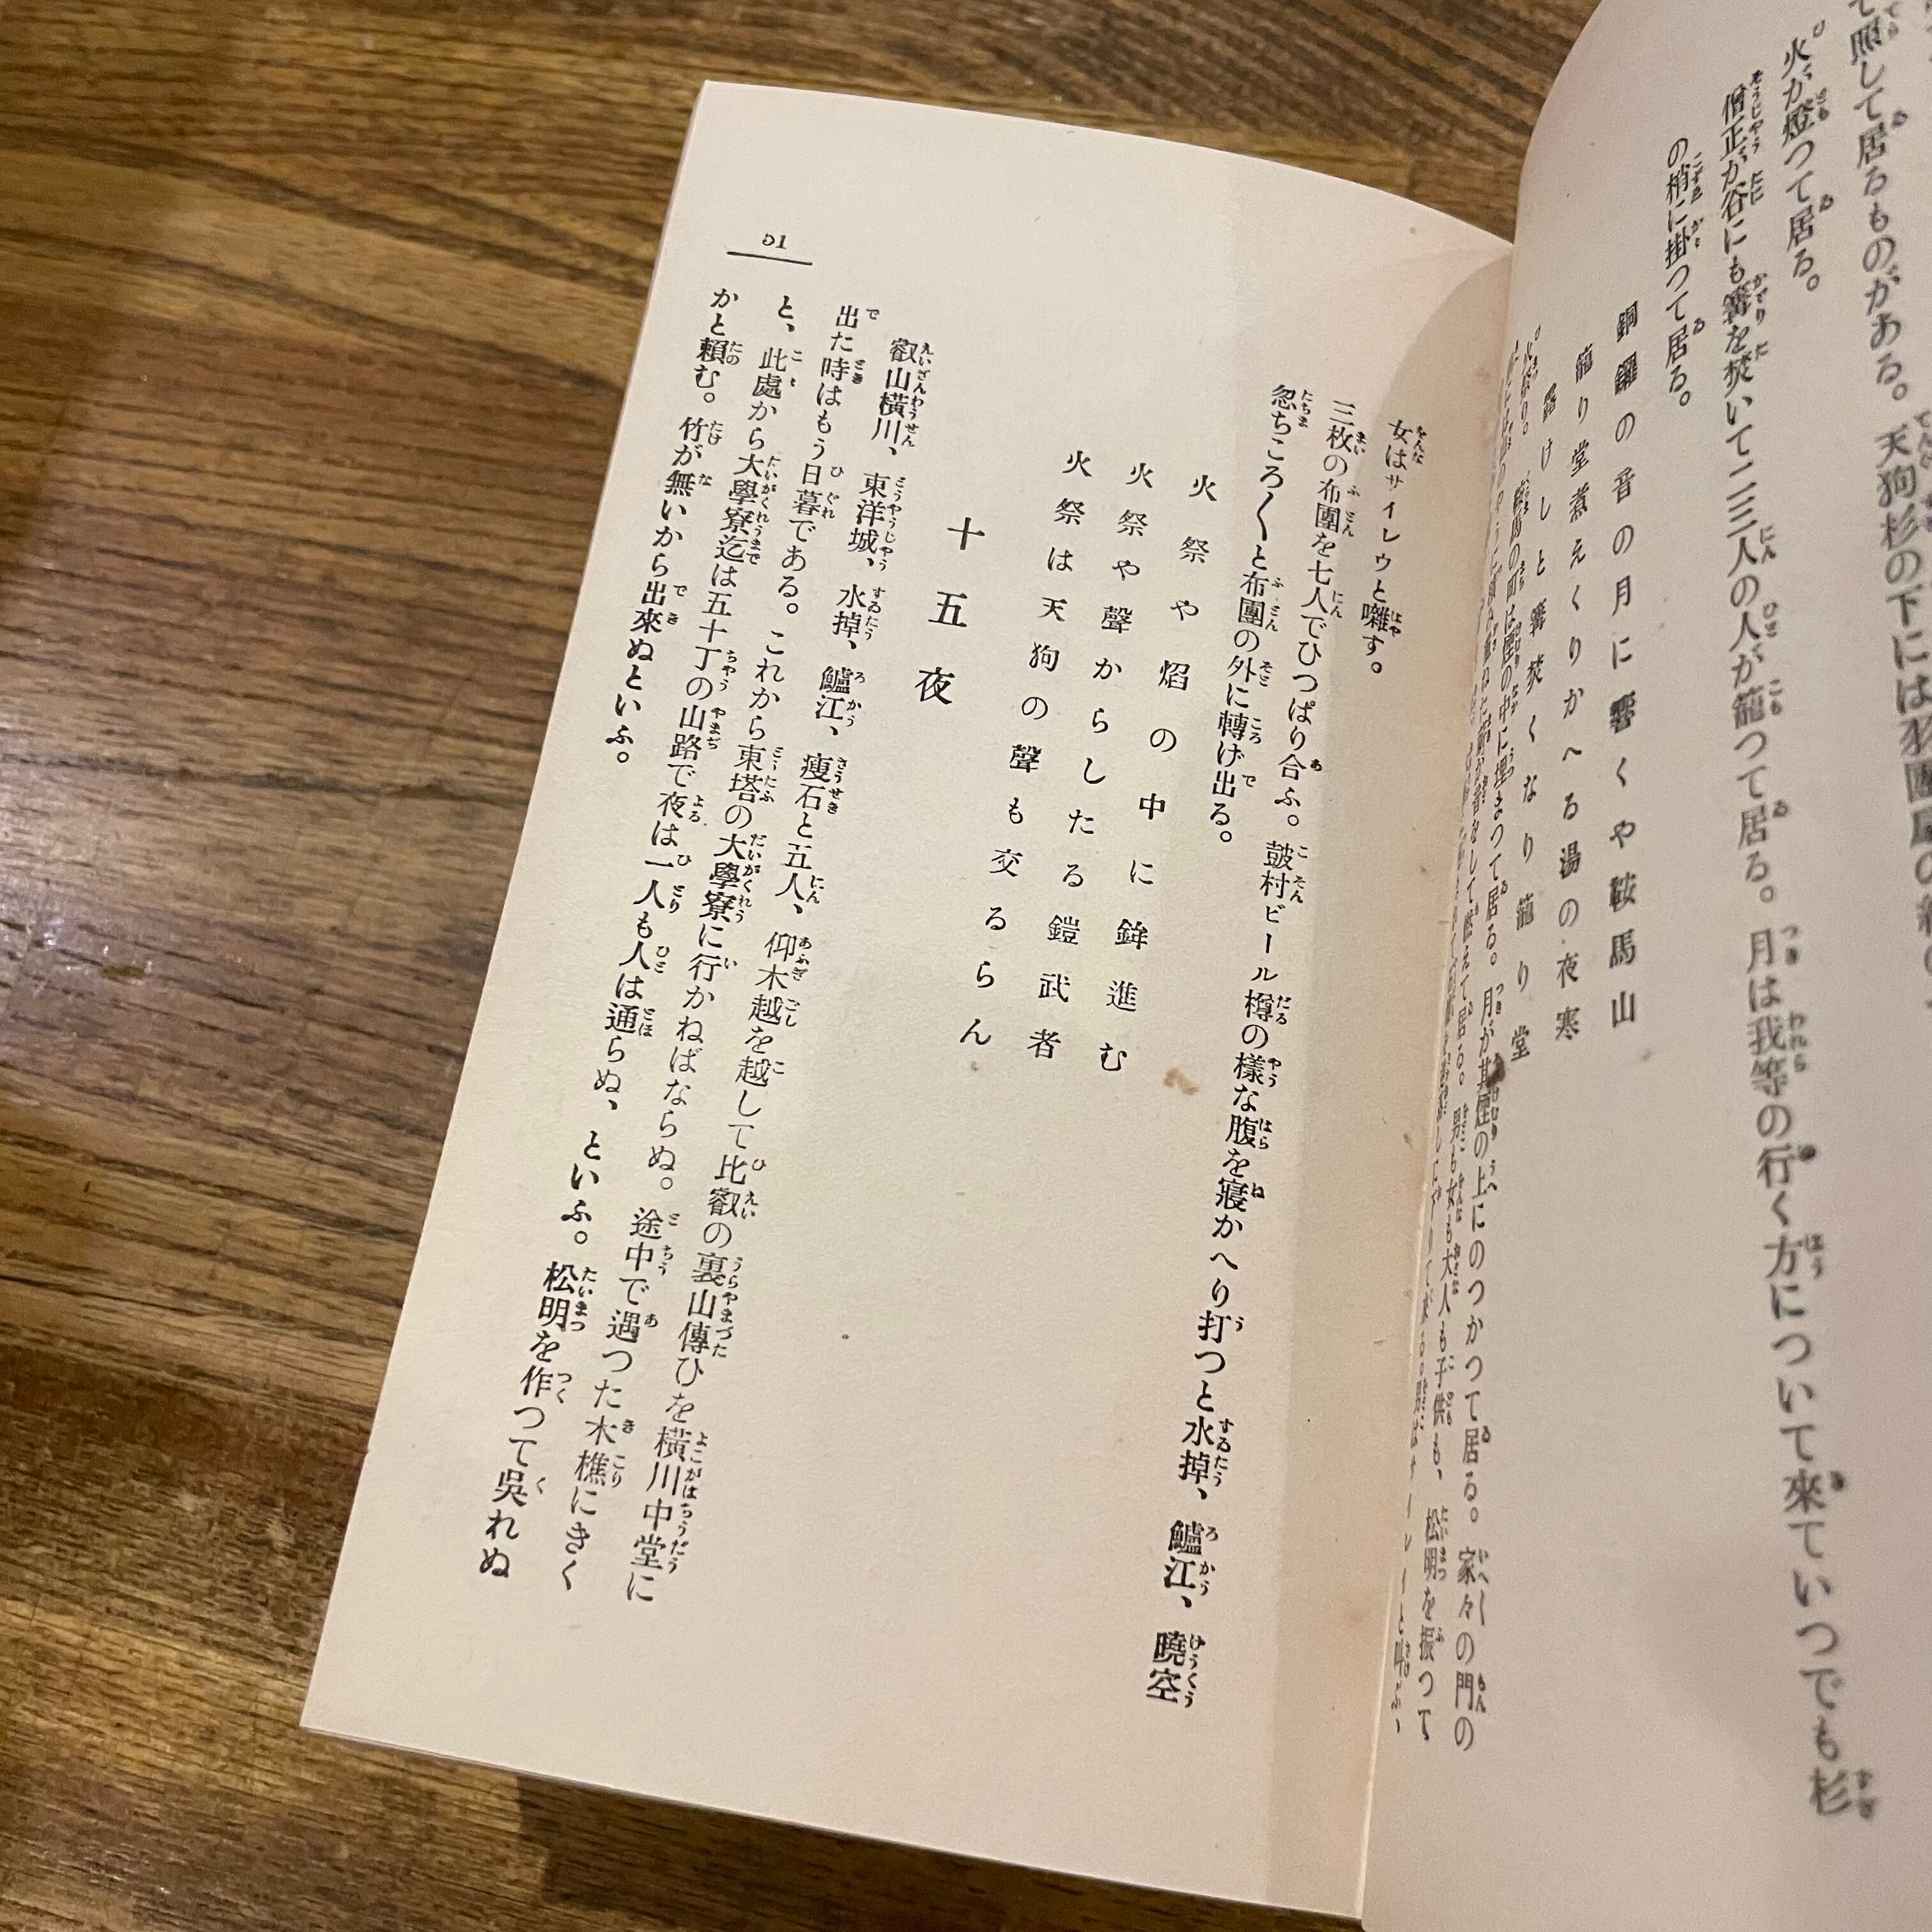 照して居るものがある。天狗杉の下には
火が燈つて居る。
僧正が谷にも篝を焚いて二三人の人が籠つて居る。月は我等の行く方について來ていつでも杉
の梢に掛つて居る。
銅鑼の音の月に響くや鞍馬山
籠り堂煮えくりかへる湯の夜寒
露けしと篝焚くなり籠り堂
の町は煙の中に埋まつて居る。月が其煙の上にのつかつて居る。家々の門の
居る。男も女も大人も子供も、松明を振つて
女はサイレウと囃す。
三枚の布團を七人でひつぱり合ふ。鼓村ビール樽の樣な腹を寢かへり打つと水掉、鱸江、曉空
忽ちころ〱と布團の外に轉げ出る。
火祭や焰の中に鉾進む
火祭や聲からしたる鎧武者
火祭は天狗の聲も交るらん
十五夜
叡山横川、東洋城、水掉、鱸江、瘦石と五人、仰木越を越して比叡の裏山傳ひを横川中堂に
出た時はもう日暮である。これから東塔の大學寮に行かねばならぬ。途中で遇つた木樵にきく
と、此處から大學寮迄は五十丁の山路で夜は一人も人は通らぬ、といふ。松明を作つて吳れぬ
かと賴む。竹が無いから出來ぬといふ。